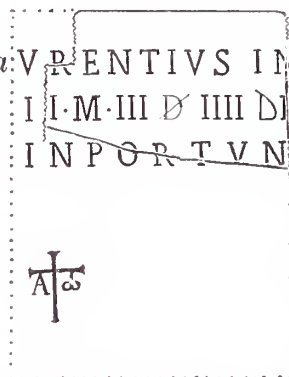 aVRENTIVS IN
II·M·III D IIII DI
INPORTVN
A ω